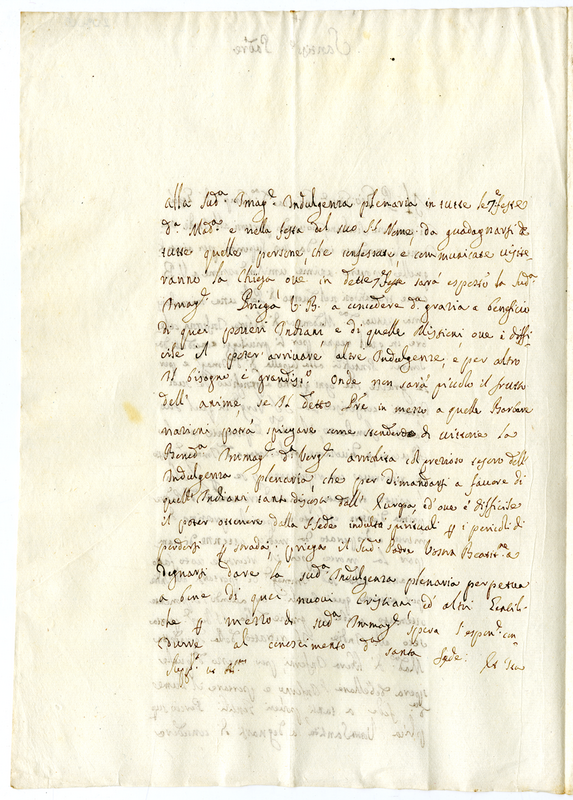 alla Sud.ª Imag.e Indulgenza plenaria in tutte le 7 feste
d.ª Mad.ª e nella festa del suo SS. Nome, da guadagnarsi da
tutte quelle persone, che confessate, e communicate visite-
ranno la Chiesa ove in dette 7 feste sarà esposta la Sud.ª
Imag.e Priega V. B. a concedere d.ª grazia a beneficio
di quei poveri Indiani e di quelle Missioni ove è diffi
cile il poter arrivare altre Indulgenze, e per altro
il bisogno è grandiss.o Onde non sarà piccolo il frutto
dell' anime se il detto Pre in mezzo a quelle Barbare
nationi potrà spiegare come stendardo di vittorie la
Bened.ª Immag.e d. Verg.e arrichita col prezioso tesoro dell'
Indulgenza plenaria, che per dimandarsi a favore di
quelli Indiani tanto discosti dall' Europa, ed ove è difficile
il poter ottenere dalla S. Sede indulti spirituali p i pericoli di
perdersi p strada; priega il Sud.o Padre Vostra Beatit.ne a
degnarsi dare la sud.ª Indulgenza plenaria perpetua
a bene di quei nuovi Cristiani ed altri
che p mezzo di sud.ª Immag.e spera l'espon.e con
durre al conoscimento d.ª santa fede: